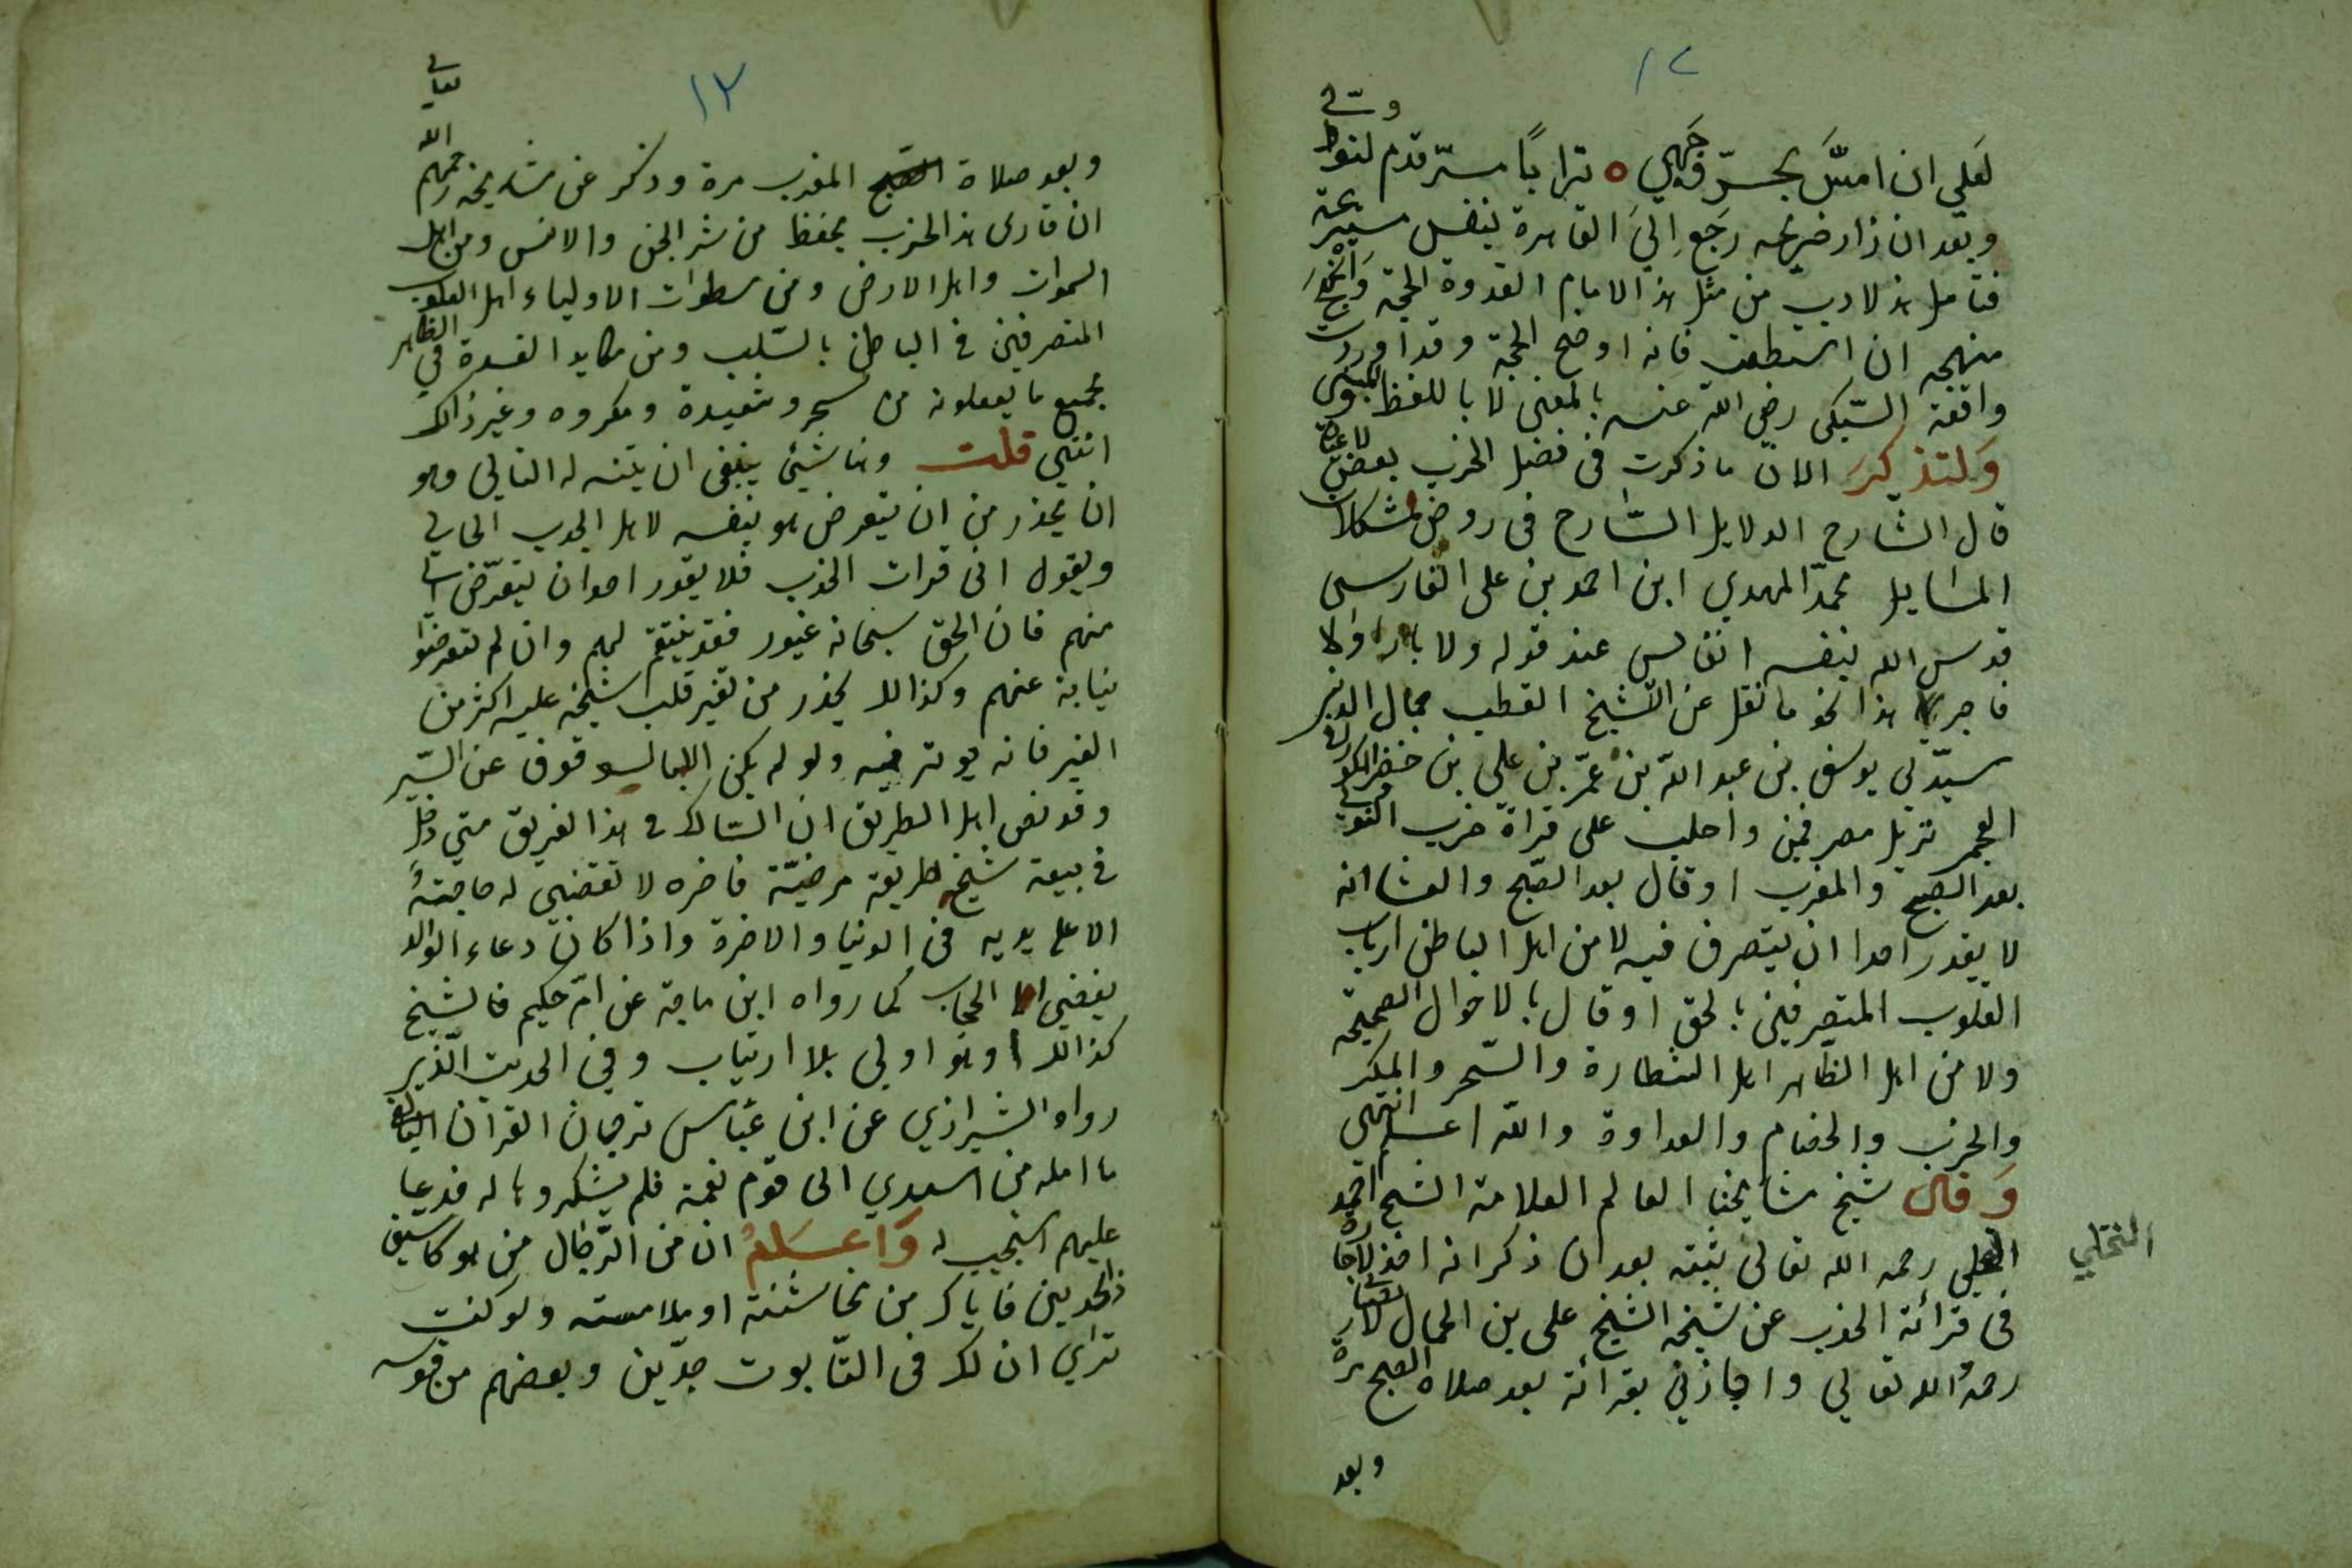 ١٢
لعلي ان امسَّ بحرّ وجهي ه ترابًا مسّه قدم لنواوي
وبعد ان زار ضريحه رجع الي القاهرة بنفس سيرعته
فتامل هذلادب من مثل هذ الامام القدوة الحجه وانحُ
منهجه ان استطعت فانه اوضح المحجة وقد اوردت
واقعة السّبكى رضي الله عنه بالمعنى لا باللفظ
وَلتذكرَ الان ما ذكرت فى فضل الحزب بعض
قال الشارح الدلايل الشارح فى روض مشكلات
المسايل محمّد المهدي ابن احمد بن على الفارسى
قدس الله بنفسه انفالس عند قوله ولا بار ولا
فاجر هذا نحو ما نقل عن الشيخ القطب جمال الدين
سيّدي يوسف بن عبد الله بن عمر بن علي بن خضر الكوراني
العجمي نزيل مصر فمن واظب على قراة حزب النووي
بعد الصبح والمغرب او قال بعد الصّبح والعشا انه
لا يقدر احدا ان يتصرف فيه لا من اهل الباطن ارباب
القلوب المتصرفين بالحق او قال بالاحوال الصحيحه
ولا من اهل الظاهر اهل الشطارة والسّحر والمكر
والحرب والخصام والعداوة والله اعلم انتهى
وَقال شيخ مشايخنا العالم العلامة الشيخ احمد
النخلي رحمه الله تعالى بثبته بعد ان ذكر انه اخذ لاجازة
فى قرائة الحزب عن شيخه الشيخ على بن الجمال
رحمهُ الله تعالي واجازني بقرائة بعد صلاة الصبح مرة
النخلي
وبعد
١٣
وبعد صلاة الصبح المغرب مرة وذكر عن مشايخه رحمهم الله تعالي
ان قارى هذ الحزب يحفظ من شر الجن والانس ومن اهل
السموات واهل الارض ومن سطوات الاولياء اهل القلوب
المتصرفين فى الباطن بالسّلب ومن مكايد الفسدة في الظاهر
بجميع ما يفعلونه من سحر وشعبدة ومكروه وغير ذالك
انتهي قلت وهنا شيئ ينبغى ان يتنبه له التالي وهو
ان يحذر من ان يتعرض هو بنفسه لاهل الجدب الحالي
ويقول انى قرات الحزب فلا يقدر احد ان يتعرّض
منهم فان الحق سبحانه غيور فقد ينتقم لهم وان لم يتعرضوا
نيابة عنهم وكذالك يحذر من تغير قلب شيخه عليه اكثر من
الغير فانه يوثر فيه ولو لم يكن
وقد نص اهل الطريق ان السّالك فى هذ الفريق متي دخل
في بيعة شيخ طريقة مرضيّة فاخره لا تقضي له حاجتهُ
الا على يديه فى الدنيا والاخرة واذا كان دعاء الوالد
يفضي الحجاب كما رواه ابن ماجة عن امّ حكيم فالشيخ
كذالك وهو اولي بلا ارتياب وفي الحديث الّذي
رواه الشيرازي عن ابن عبّاس ترجمان القران
ما امله من اسدي الى قوم نعمة فلم يشكروها له فدعا
عليهم استجيب له وَاعلمُ ان من الرّجال من هو كا سيف
ذالحدين فاياك من مخاشنته او ملامسته ولو كنت
تراي ان لك فى التّابوت جدّين وبعضهم من